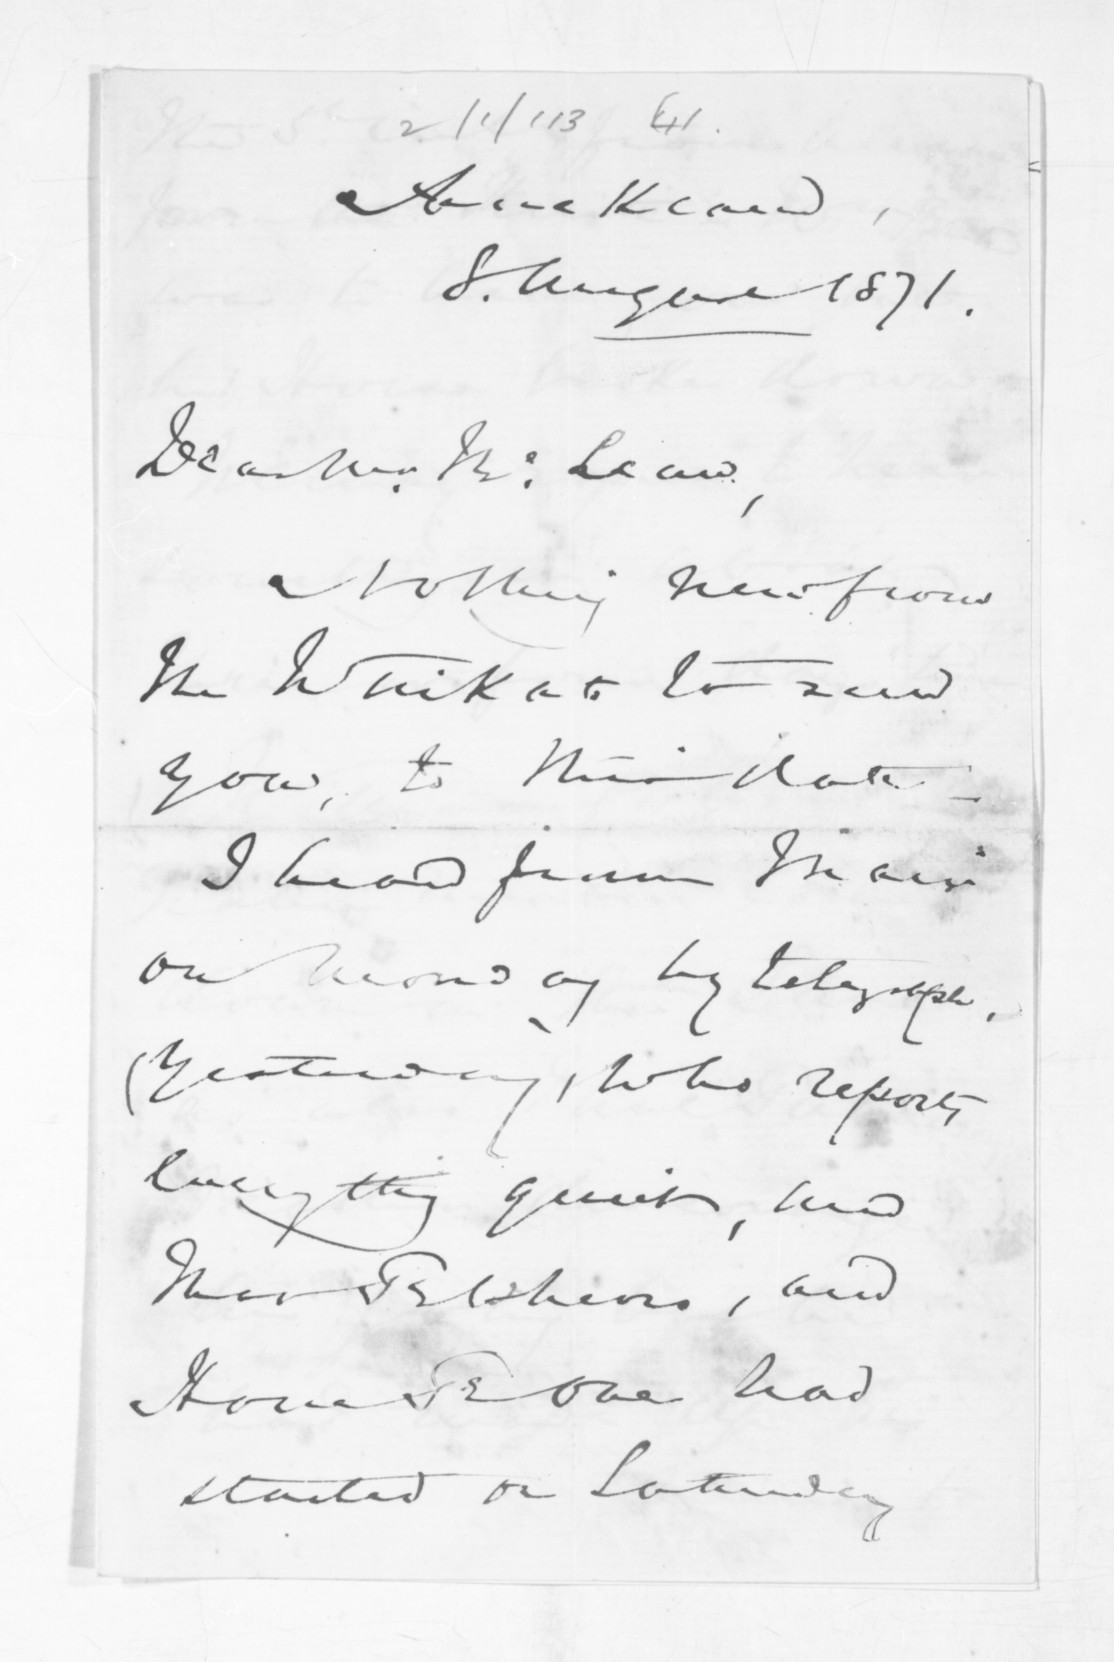 2/1/113 41.
Auckland,
8. August 1871.
Dear Mr. McLean,
Nothing new from
the Waikato to send
you, to this date -
I heard from Mair
on Monday by telegraph,
(yesterday, who reports
everything quiet, and
that Te Wheoro, and
Hone Te One had
started on Saturday